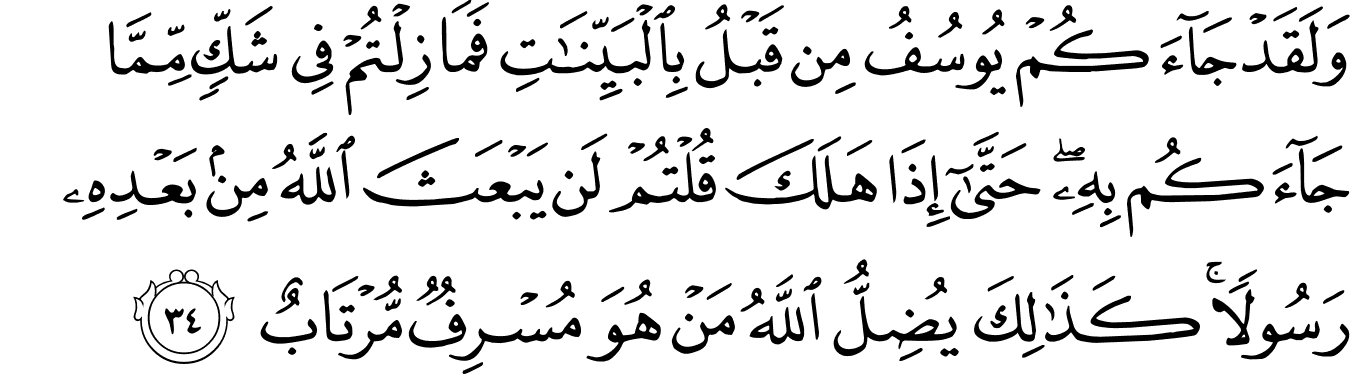 وَلَقَدْ جَآءَكُمْ يُوسُفُ مِن قَبْلُ بِٱلْبَيِّنَـٰتِ فَمَا زِلْتُمْ فِى شَكٍّ مِّمَّا
جَآءَكُم بِهِۦ ۖ حَتَّىٰٓ إِذَا هَلَكَ قُلْتُمْ لَن يَبْعَثَ ٱللَّهُ مِنۢ بَعْدِهِۦ
رَسُولًا ۚ كَذَٰلِكَ يُضِلُّ ٱللَّهُ مَنْ هُوَ مُسْرِفٌ مُّرْتَابٌ ٣٤